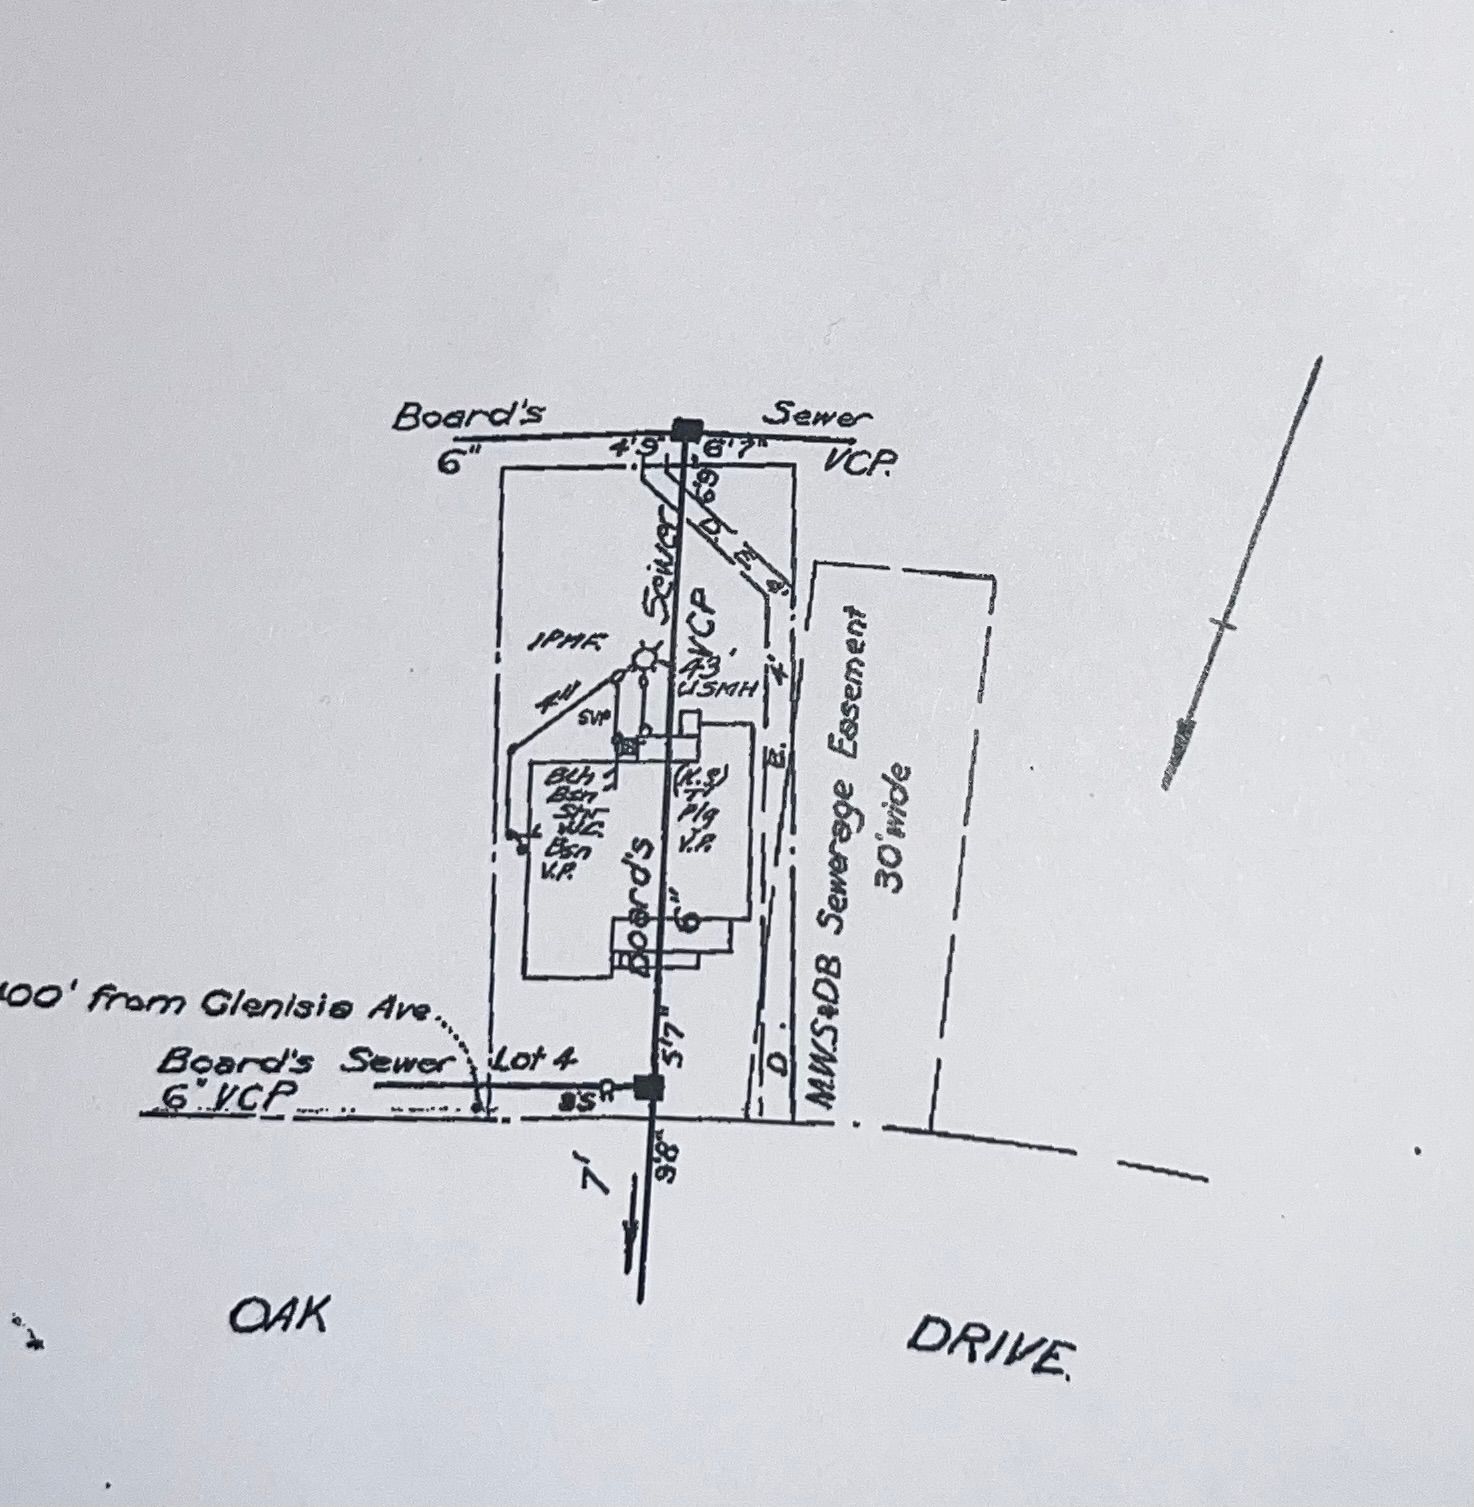 Board's
Sewer
6"
4'9"
6'7"
VCP.
6'9"
Sewer
D.
E.
4'
VCP
43'
USMH
4'
SVP
E.
Bth
Bsn
Shr
W.C.
Bsn
V.P.
(K.S)
Tr
Plg
V.P.
Board's
6"
M.W.S&DB Sewerage Easement
30' wide
00' from Glenisia Ave.
5'7"
D.
Board's Sewer
Lot 4
6" VCP
7'
9'8"
OAK
DRIVE.